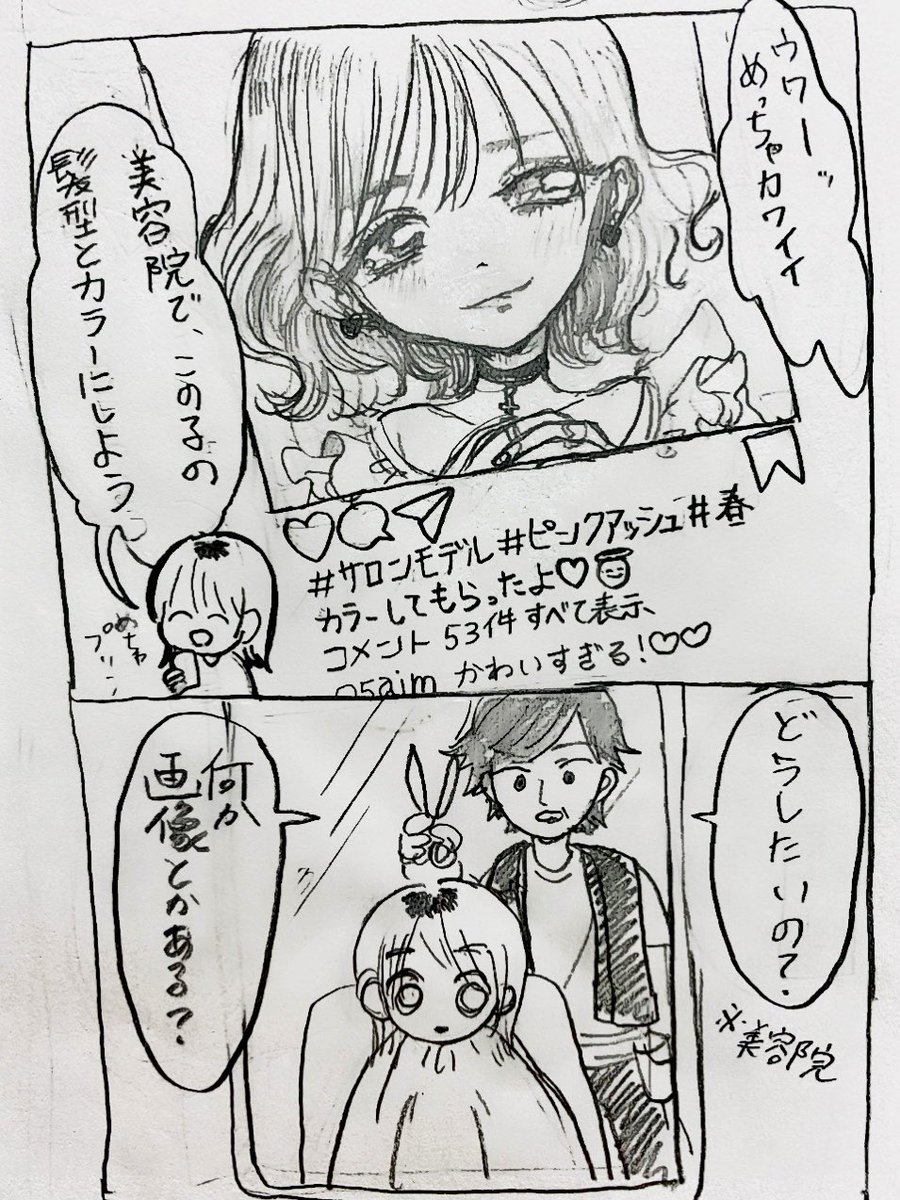 ウワーッ
めっちゃカワイイ
美容院で、この子の
髪型とカラーにしよう
めちゃ
プリン
#サロンモデル#ピンクアッシュ#春
カラーしてもらったよ♡😇
コメント53件すべて表示
05aim かわいすぎる!♡♡
どうしたいの?
※美容院
何か
画像とかある?